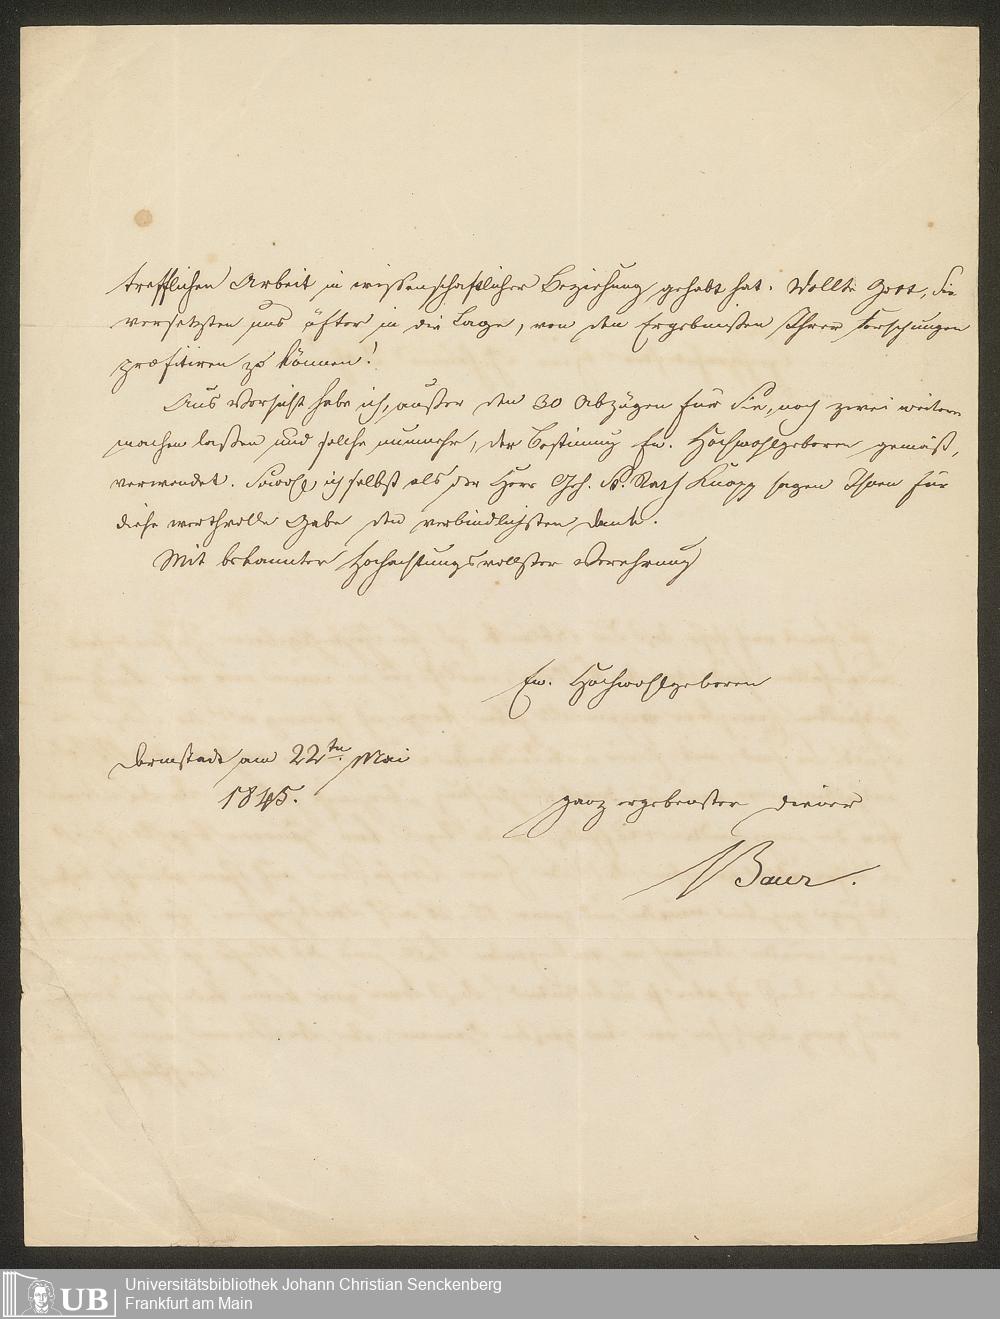 trefflichen Arbeit in wissenschaftlicher Beziehung gehabt hat. Wollte Gott, Sie
versetzten uns öfter in die Lage, von den Ergebnißen Ihrer Forschungen
profitiren zu können!
Aus Vorsicht habe ich, außer den 30 Abzügen für Sie, noch zwei weitere
machen laßen und solche nunmehr, der Bestimung Ew. Hochwohlgeboren gemäß,
verwendet. Sowohl ich selbst als der Herr Geh. St. Rath Knapp sagen Ihnen für
diese werthvolle Gabe den verbindlichsten Dank.
Mit bekannter hochachtungsvollster Verehrung
Ew. Hochwohlgeboren
Darmstadt am 22ten Mai
1845.
ganz ergebenster Diener
Baur.
UB
Universitätsbibliothek Johann Christian Senckenberg
Frankfurt am Main